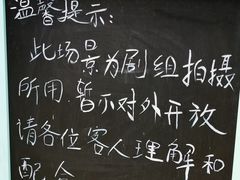 温馨提示:
此场景为剧组拍摄
所用.暂不对外开放
请各位客人理解和
配合